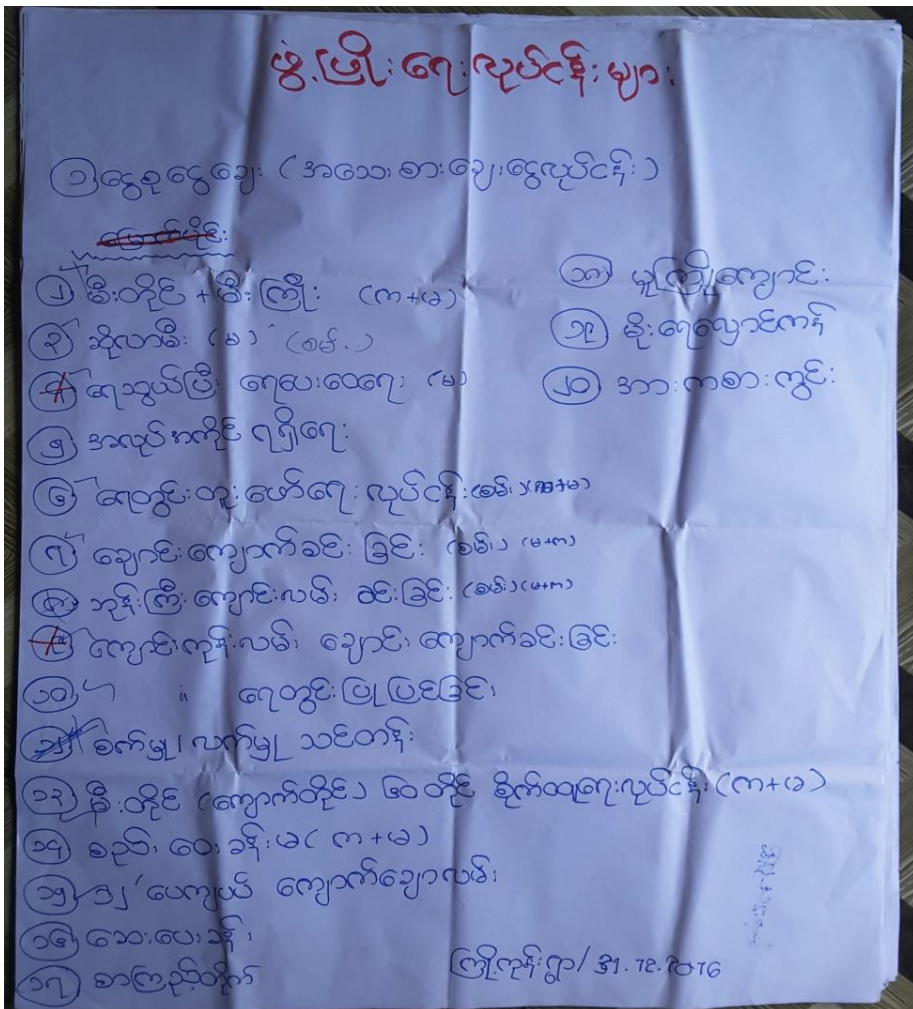 ဖွံ့ဖြိုးရေးလုပ်ငန်းများ
၁ ငွေစုငွေချေး (အသေးစားချေးငွေလုပ်ငန်း)
၂ မီးတိုင် + မီးကြိုး (က+ခ)
၃ ဆိုလာမီး (ခ) (စမ်း)
၄ ရေသွယ်ပြီး ရေပေးဝေရေး (ခ)
၅ အလုပ်အကိုင် ရရှိရေး
၆ ရေတွင်းတူးဖော်ရေးလုပ်ငန်း (စမ်း) (က+ခ)
၇ ချောင်းကျောက်ခင်းခြင်း (စမ်း) (ခ+က)
၈ ဘုန်းကြီးကျောင်းလမ်း ခင်းခြင်း (စမ်း) (ခ+က)
၉ ကျောင်းကုန်းလမ်း ချောင်း ကျောက်ခင်းခြင်း
၁၀ " " ရေတွင်းပြုပြင်ခြင်း
၁၂ စက်မှု၊ လက်မှု သင်တန်း
၁၃ မီးတိုင် (ကျောက်တိုင်) ၆၀ တိုင် စိုက်ထူရေးလုပ်ငန်း (က+ခ)
၁၄ စည်းဝေးခန်းမ (က+ခ)
၁၅ ၁၂' ပေကျယ် ကျောက်ချောလမ်း
၁၆ ဆေးပေးခန်း
၁၇ စာကြည့်တိုက်
၁၈ မူကြိုကျောင်း
၁၉ မိုးရေလှောင်ကန်
၂၀ အားကစားကွင်း
ကြို့ကုန်းရွာ / 31.12.2016